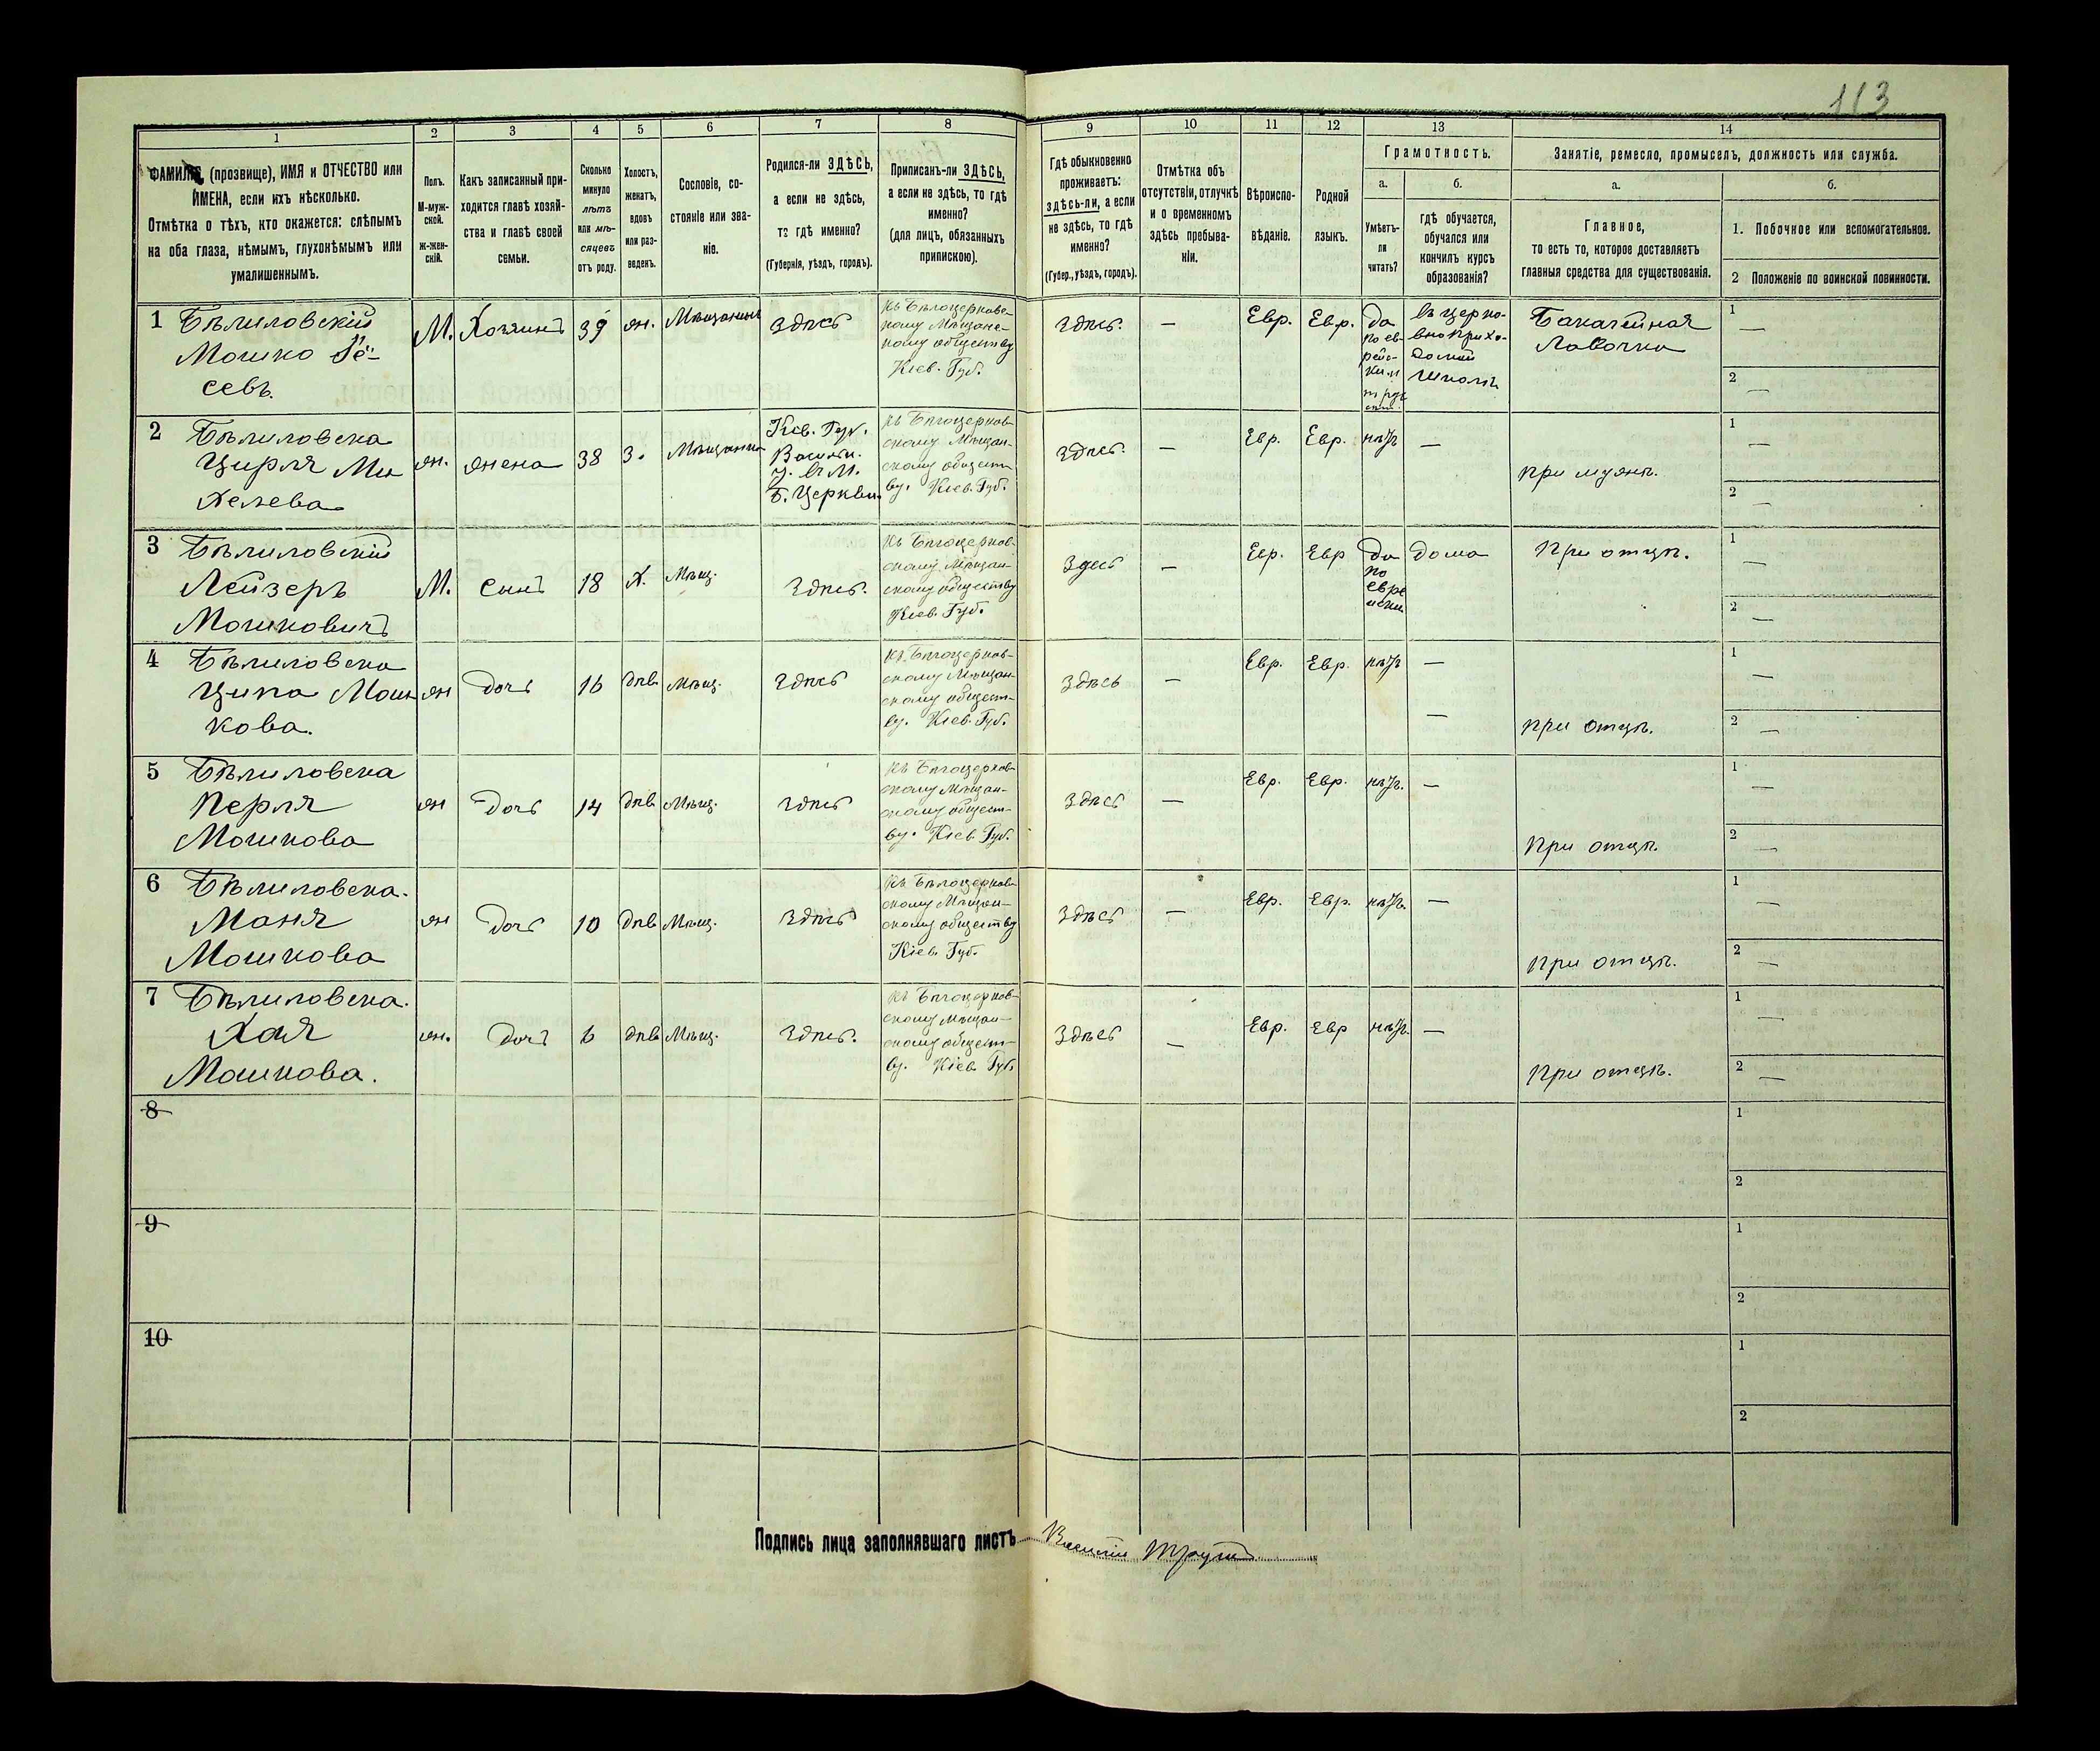 113
1 2 3 4 5 6 7 8 9 10 11 12 13 14
ФАМИЛІЯ (прозвище), ИМЯ и ОТЧЕСТВО или
ИМЕНА, если ихъ нѣсколько.
Отмѣтка о тѣхъ, кто окажется: слѣпымъ
на оба глаза, нѣмымъ, глухонѣмымъ или
умалишеннымъ.
Полъ.
М-муж-
ской.
ж-жен-
скій.
Какъ записанный при-
ходится главѣ хозяй-
ства и главѣ своей
семьи.
Сколько
минуло
лѣтъ
или мѣ-
сяцевъ
отъ роду.
Холостъ,
женатъ,
вдовъ
или раз-
веденъ.
Сословіе, со-
стояніе или зва-
ніе.
Родился-ли ЗДѢСЬ,
а если не здѣсь,
то гдѣ именно?
(Губернія, уѣздъ, городъ).
Приписанъ-ли ЗДѢСЬ,
а если не здѣсь, то гдѣ
именно?
(для лицъ, обязанныхъ
припискою).
Гдѣ обыкновенно
проживаетъ:
здѣсь-ли, а если
не здѣсь, то гдѣ
именно?
(Губер., уѣздъ, городъ).
Отмѣтка объ
отсутствіи, отлучкѣ
и о временномъ
здѣсь пребыва-
ніи.
Вѣроиспо-
вѣданіе.
Родной
языкъ.
Грамотность.
а.
Умѣетъ-
ли
читать?
б.
гдѣ обучается,
обучался или
кончилъ курсъ
образованія?
Занятіе, ремесло, промыселъ, должность или служба.
а.
Главное,
то есть то, которое доставляетъ
главныя средства для существованія.
б.
1. Побочное или вспомогательное.
2 Положеніе по воинской повинности.
1 Бѣлиловскій
Мошко
севъ.
М.
Хозяинъ
39
ж.
Мѣщанинъ
Здѣсь
Къ Бѣлоцерковс-
кому Мѣщанс-
кому обществу
Кіев. Губ.
Здѣсь.
—
Евр.
Евр.
да
по ев-
рейс-
ки и
въ церко-
вно прихо-
дской
школѣ
Бакалейная
Лавочка
1 —
2 —
2 Бѣлиловска
Цирля Ми
хелева
ж.
жена
38
З.
Мѣщанка
Кіев. Губ.
Васильк.
у. въ М.
Б. Церкви.
къ Бѣлоцерков-
скому Мѣщан-
скому общест-
ву. Кіев. Губ.
Здѣсь.
—
Евр.
Евр.
нѣтъ
—
при мужѣ.
1 —
2 —
3 Бѣлиловскій
Лейзеръ
Мошковичъ
М.
Сынъ
18
х.
Мѣщ.
Здѣсь.
Къ Бѣлоцерков-
скому Мѣщан-
скому обществу
Кіев. Губ.
Здесь
—
Евр.
Евр
да
по
евре
йски
дома
При отцѣ.
1 —
2 —
4 Бѣлиловска
Ципа Мош
кова.
ж
дочь
16
дѣв
Мѣщ.
Здѣсь
къ Бѣлоцерков-
скому Мѣщан-
скому общест-
ву. Кіев. Губ.
Здѣсь
—
Евр.
Евр.
нѣтъ
—
—
при отцѣ.
1 —
2 —
5 Бѣлиловска
Перля
Мошкова
ж
дочь
14
дѣв
Мѣщ.
Здѣсь
къ Бѣлоцерков-
скому Мѣщан-
скому общест-
ву. Кіев. Губ.
Здѣсь
—
Евр.
Евр.
нѣтъ.
—
При отцѣ.
1 —
2 —
6 Бѣлиловска.
Маня
Мошкова
ж
дочь
10
дѣв
Мѣщ.
Здѣсь
къ Бѣлоцерков-
скому Мѣщан-
скому обществу
Кіев. Губ.
Здѣсь
—
Евр.
Евр.
нѣтъ.
—
при отцѣ.
1 —
2 —
7 Бѣлиловска.
Хая
Мошкова.
ж.
дочь
6
дѣв
Мѣщ.
Здѣсь.
къ Бѣлоцерков-
скому Мѣщан-
скому общест-
ву. Кіев. Губ.
Здѣсь
—
Евр.
Евр
нѣтъ.
—
При отцѣ.
1 —
2 —
8
1
2
9
1
2
10
1
2
Подпись лица заполнявшаго листъ